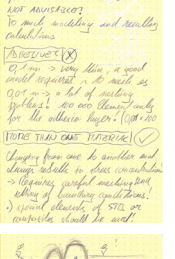 NOT ADVISABLE?
To much modeling and resulting
calculations
ADHESIVES
0,1 mm → very thin, a good
model requires
0,01 m → a lot of meshing
problems! 100 000 elements only
for the adhesive layer!
MORE THAN ONE MATERIAL
Changing from one to another and
always
→ Requires careful meshing and
setting of boundary conditions!
special elements of
composites should be used!